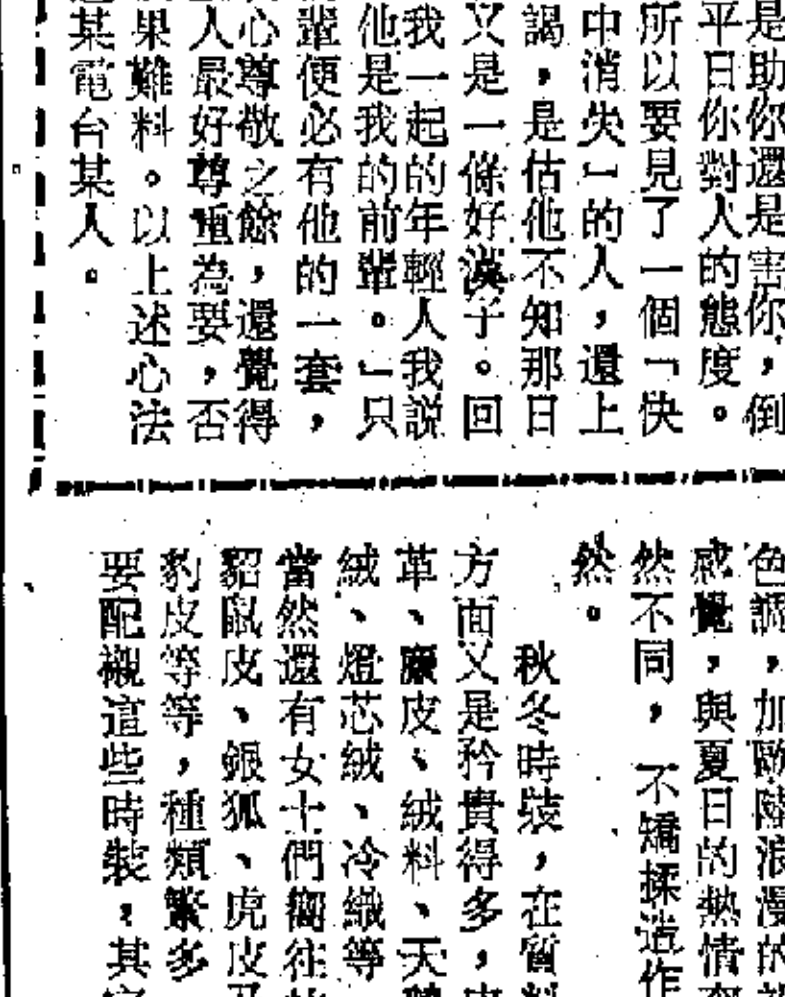 是助你還是害你，倒
平日你對人的態度。
所以要見了一個「快
中消失」的人，還上
謁，是估他不知那日
又是一條好漢子。回
我一起的年輕人我説
他是我的前輩。」只
輩便必有他的一套，
心尊敬之餘，還覺得
人最好尊重為要，否
果難料。以上述心法
某電台某人。
色調，加歐陸浪漫的
感覺，與夏日的熱情
然不同，不矯揉造作
然。
秋冬時裝，在質料
方面又是矜貴得多，皮
革、麖皮、絨料、天鵝
絨、燈芯絨、冷織等
當然還有女士們嚮往
貂鼠皮、銀狐、虎皮及
豹皮等等，種類繁多
要配襯這些時裝，其